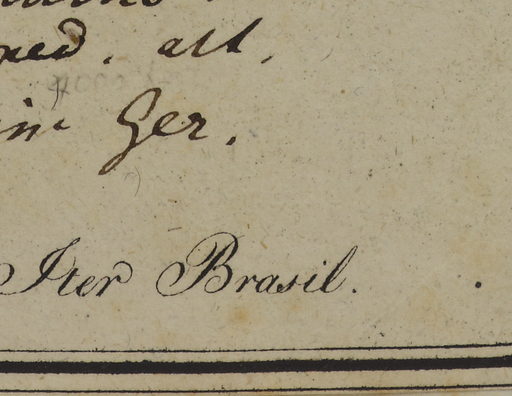 ped. alt.
in. Ger.
Iter Brasil.